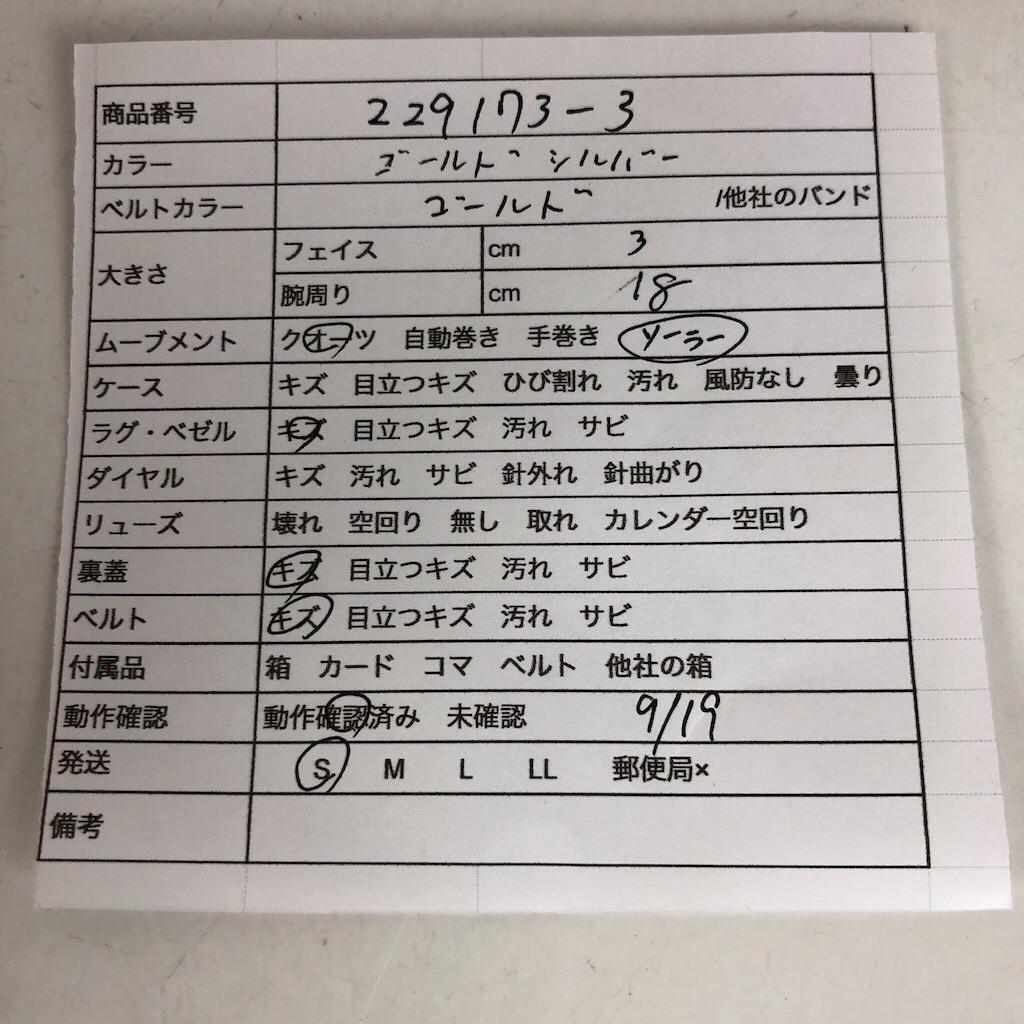 商品番号 229173-3
カラー ゴールド シルバー
ベルトカラー ゴールド /他社のバンド
大きさ フェイス cm 3
腕周り cm 18
ムーブメント クオーツ 自動巻き 手巻き ソーラー
ケース キズ 目立つキズ ひび割れ 汚れ 風防なし 曇り
ラグ・ベゼル キズ 目立つキズ 汚れ サビ
ダイヤル キズ 汚れ サビ 針外れ 針曲がり
リューズ 壊れ 空回り 無し 取れ カレンダー空回り
裏蓋 キズ 目立つキズ 汚れ サビ
ベルト キズ 目立つキズ 汚れ サビ
付属品 箱 カード コマ ベルト 他社の箱
動作確認 動作確認済み 未確認 9/19
発送 S M L LL 郵便局×
備考